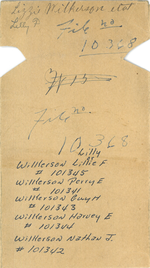 Lizzie Wilkerson et al
Lilly F.
File no
10368
File no.
10368
Lilly
Willkerson Lillie F
# 101345
Willkerson Percy E
# 101341
Willkerson Guy H
# 101343
Willkerson Harvey E
# 101344
Willkerson Nathan J.
# 101342